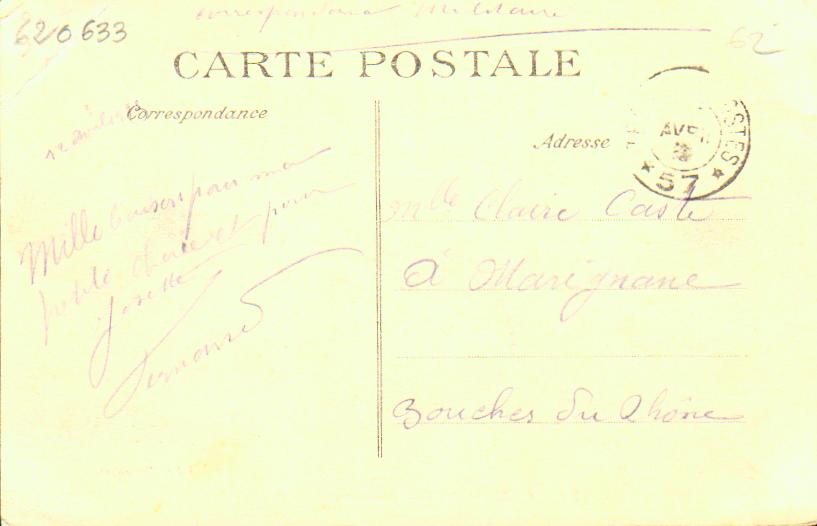 620633
Correspondance Militaire
62
CARTE POSTALE
Correspondance
Adresse
12 avril
AVR
57
Mille baisers pour ma
petite Claire et pour
Josette
Fernand
Mlle Claire Caste
à Marignane
Bouches du Rhône